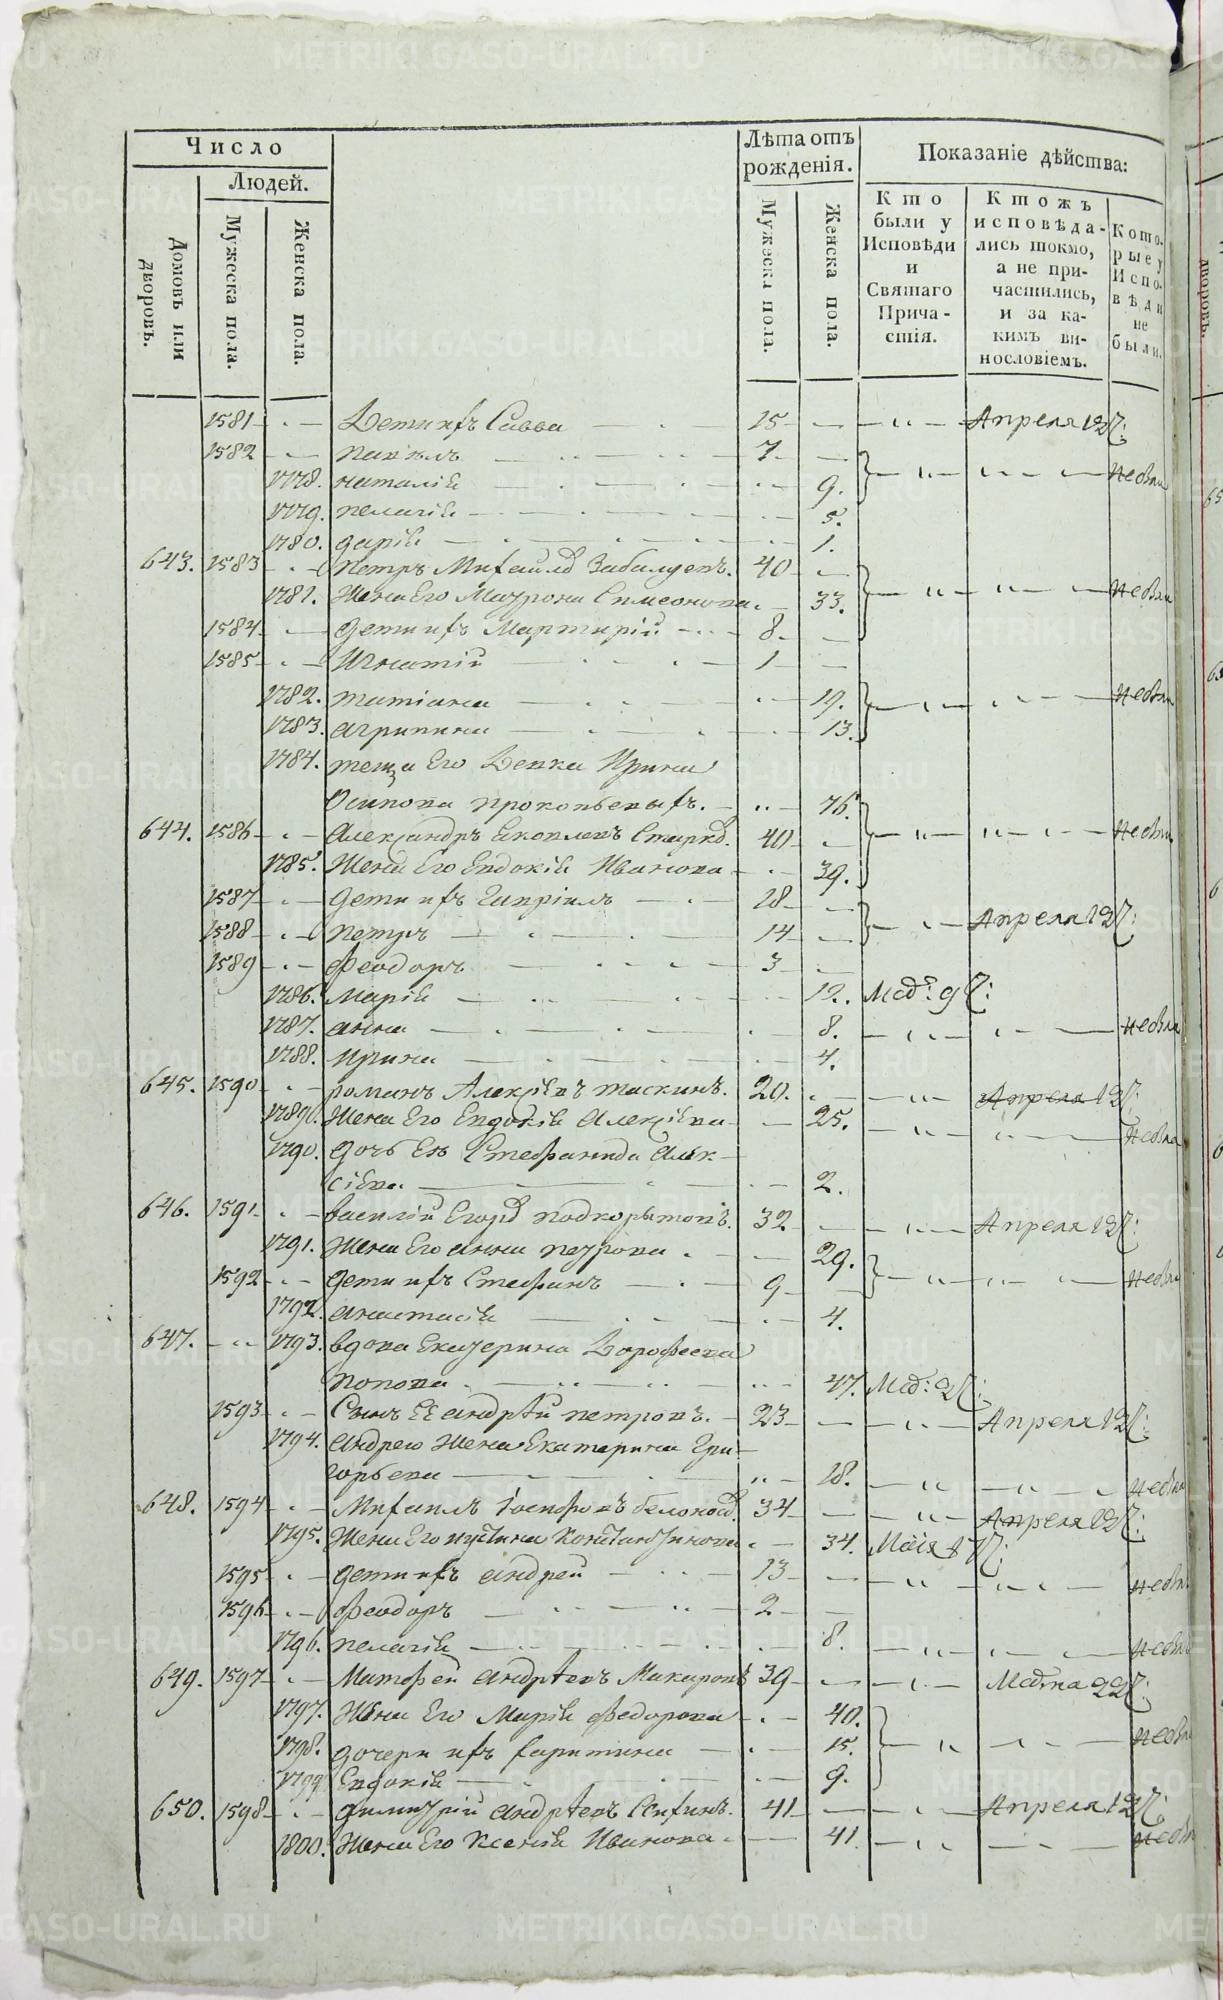 Число
Людей.
Домовъ или дворовъ.
Мужеска пола.
Женска пола.
Лѣта отъ рожденія.
Мужеска пола.
Женска пола.
Показаніе дѣйства:
Кто были у Исповѣди и Святаго Причастія.
Ктожъ исповѣдались токмо, а не причастились, и за какимъ винословіемъ.
Которые у Исповѣди не были.
1581 Дети ихъ Савва 15 Апреля 12
1582 Павелъ 7
1778. наталія 9. небы
1779. пелагія 5.
1780. дарія 1.
643. 1583 Петръ Михаил Забалуевъ. 40
1781. Жена Его Маѵрона Симеонова. 33. небы
1584 дети ихъ Мартирій 8
1585 Игнатій 1
1782. татіана 19. небы
1783. агрипина 13.
1784. теща Его Девка Ирина
Осипова прокопьевыхъ. 76.
644. 1586 Александръ Яковлевъ Старк 40 небы
1785. Жена Его Евдокія Иванова 39.
1587 дети ихъ Гавріилъ 18
1588 Петръ 14 Апреля 12
1589 Феодоръ 3
1786. Марія 12. 9
1787. анна 8. небы
1788. ирина 4.
645. 1590 романъ Алексіевъ таскинъ. 20. Апреля 12
1789. Жена Его Евдокія Алексіева 25.
1790. дочь Ея Стефанида Алек- небы
сіева. 2.
646. 1591 василій Егор подкорытовъ. 32 Апреля 12
1791. Жена Его анна петрова 29.
1592 дети ихъ Стефанъ 9 небы
1792. анастасія 4.
647. 1793. вдова Екатерина Дорофеева
попова. 47.
1593 Сынъ Ее андрѣй петровъ. 23 Апреля 12
1794. андрею Жена Екатерина Гри-
горьева 18. небы
648. 1594 Михаилъ Іосифовъ белонос 34 Апреля 12
1795. Жена Его иустина Константинова 34. Маія
1595 дети ихъ андрей 13 небы
1596 Феодоръ 2
1796. пелагія 8. небы
649. 1597 Матфей андрѣевъ Макаровъ 39 22
1797. Жена Его Марія Федорова 40.
1798. дочери ихъ харитина 15. небы
1799 Евдокія 9.
650. 1598 димитрій андрѣевъ 41 Апреля 12
1800. Жена Его Ксенія Иванова 41 небы